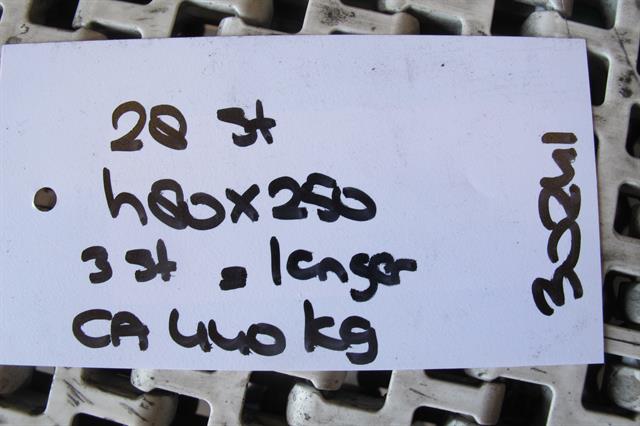 28 st
480x250
3 st = lenger
CA 440 kg
30241